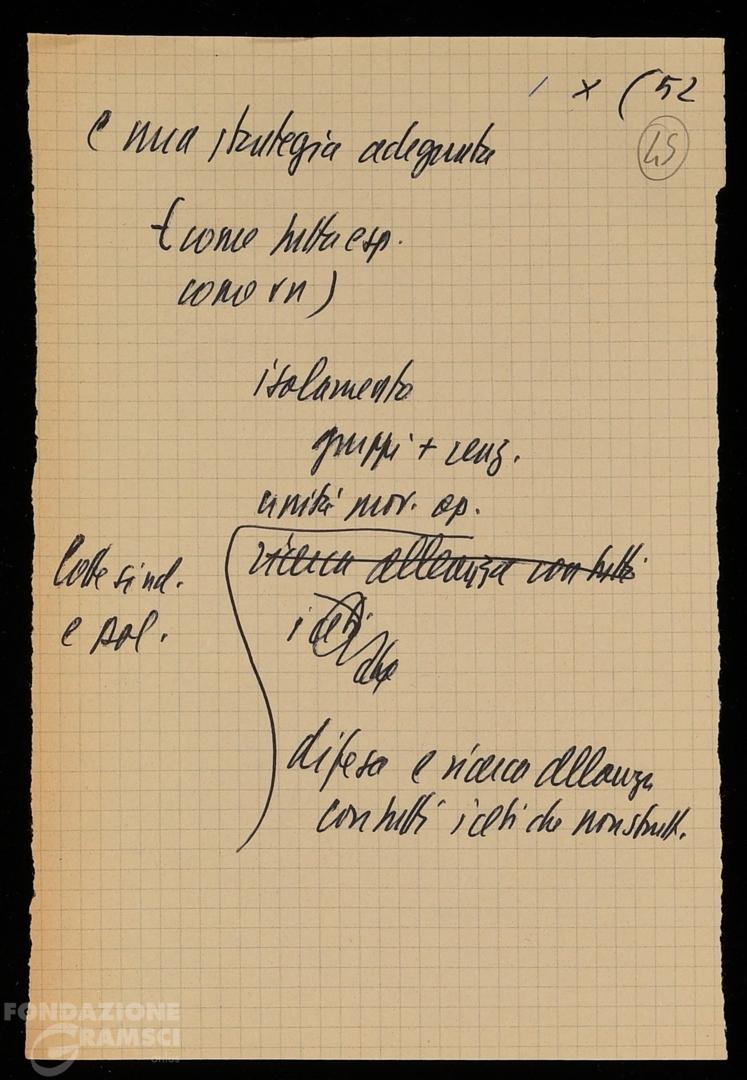 / x (52
45
e una strategia adeguata
(come tutta esp.
come vn)
isolamento
gruppi + reaz.
unità mov. op.
ricerca alleanza con tutti
i ceti
che
Lotte sind.
e pol.
difesa e ricerca alleanza
con tutti i ceti che non strutt.
FONDAZIONE
GRAMSCI
onlus